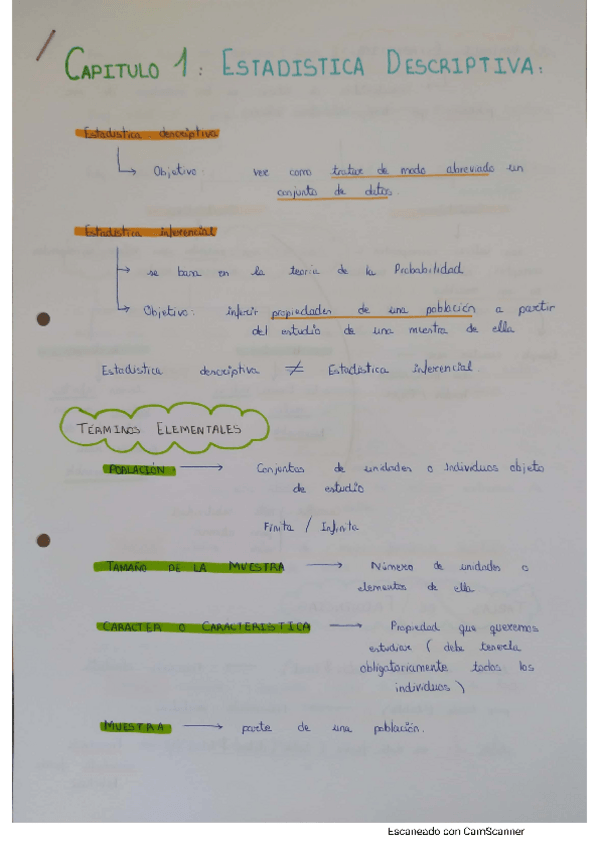 CAPITULO 1: ESTADISTICA DESCRIPTIVA:
Estadistica descriptiva
Objetivo: ver como tratar de modo abreviado un
conjunto de datos.
Estadistica inferencial
se basa en la teoria de la Probabilidad
Objetivo: inferir propiedades de una población a partir
del estudio de una muestra de ella
Estadistica descriptiva ≠ Estadistica inferencial.
TÉRMINOS ELEMENTALES
POBLACIÓN: → Conjuntos de unidades o individuos objeto
de estudio
Finita / Infinita
TAMAÑO DE LA MUESTRA → Número de unidades o
elementos de ella
CARACTER O CARACTERISTICA → Propiedad que queremos
estudiar ( debe tenerla
obligatoriamente todos los
individuos )
MUESTRA → parte de una población.
Escaneado con CamScanner